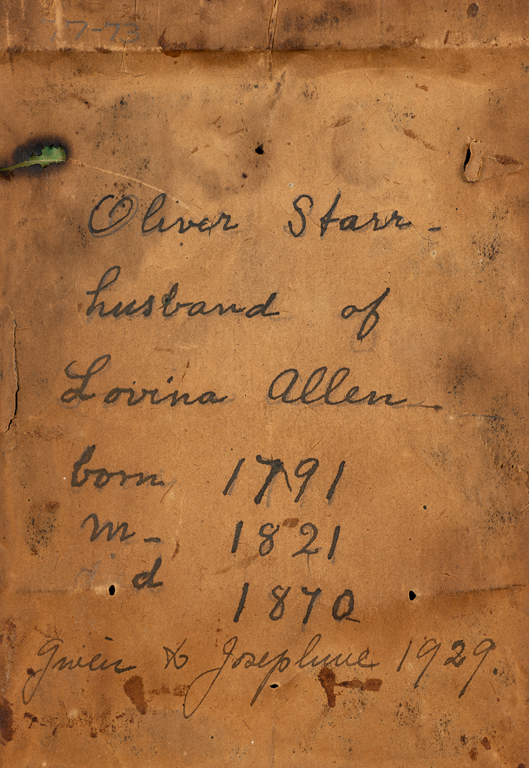 Oliver Starr -
husband of
Lovina Allen
born 1791
m - 1821
d 1870
Given to Josephine 1929.